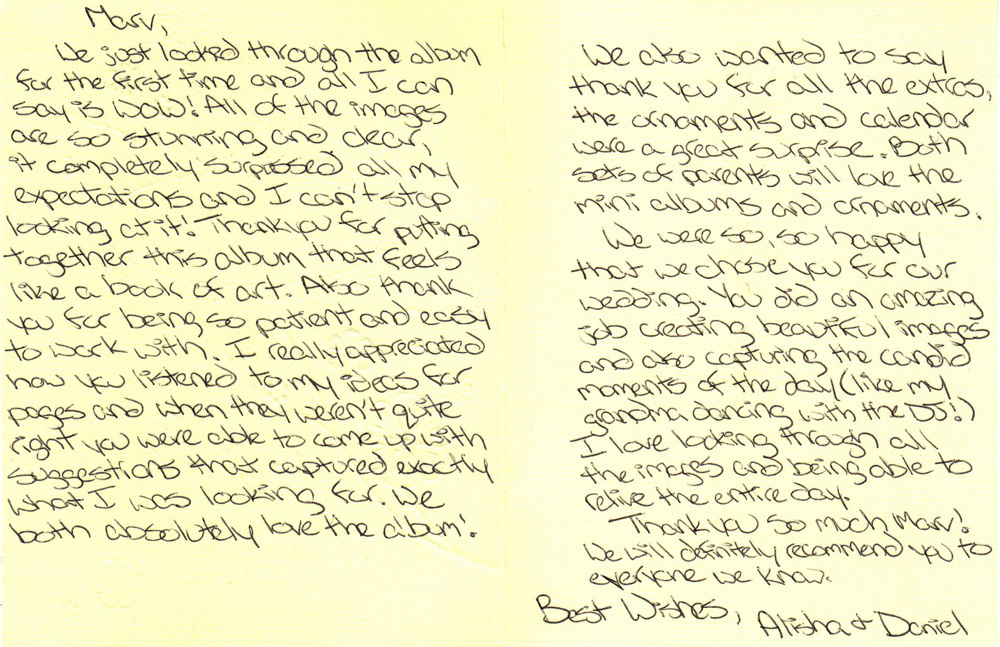 Marv,
We just looked through the album
for the first time and all I can
say is WOW! All of the images
are so stunning and clear,
it completely surpassed all my
expectations and I can't stop
looking at it! Thankyou for putting
together this album that feels
like a book of art. Also thank
you for being so patient and easy
to work with. I really appreciated
how you listened to my ideas for
pages and when they weren't quite
right you were able to come up with
suggestions that captured exactly
what I was looking for. We
both absolutely love the album!
We also wanted to say
thank you for all the extras,
the ornaments and calendar
were a great surprise. Both
sets of parents will love the
mini albums and ornaments.
We were so, so happy
that we chose you for our
wedding. You did an amazing
job creating beautiful images
and also capturing the candid
moments of the day (like my
grandma dancing with the DJ!)
I love looking through all
the images and being able to
relive the entire day.
Thank you so much Marv!
We will definitely recommend you to
everyone we know.
Best Wishes,
Alisha & Daniel